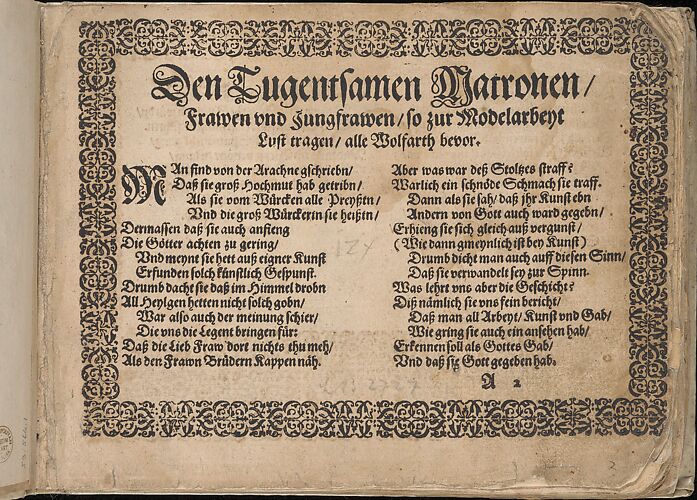 Den Tugentsamen Matronen/
Frawen vnd Jungfrawen/ so zur Modelarbeyt
Lust tragen/ alle Wolfarth bevor.
MAn find von der Arachne gschriebn/
Daß sie groß Hochmut hab getribn/
Als sie vom Würcken alle Preyßtn/
Vnd die groß Würckerin sie heißtn/
Dermassen daß sie auch anfieng
Die Götter achten zu gering/
Vnd meynt sie hett auß eigner Kunst
Erfunden solch künstlich Gespunst.
Drumb dacht sie daß im Himmel drobn
All Heylgen hetten nicht solch gobn/
War also auch der meinung schier/
Die vns die Legent bringen für:
Daß die Lieb Fraw dort nichts thu meh/
Als den Frawn Brüdern Kappen näh.
Aber was war deß Stoltzes straff?
Warlich ein schnöde Schmach sie traff.
Dann als sie sah/ daß jhr Kunst ebn
Andern von Gott auch ward gegebn/
Erhieng sie sich gleich auß vergunst/
(Wie dann gmeynlich ist bey Kunst)
Drumb dicht man auch auff diesen Sinn/
Daß sie verwandelt sey zur Spinn.
Was lehrt vns aber die Geschicht?
Diß nämlich sie vns fein bericht/
Daß man all Arbeyt/ Kunst vnd Gab/
Wie gring sie auch ein ansehen hab/
Erkennen soll als Gottes Gab/
Vnd daß sie Gott gegeben hab.
A 2